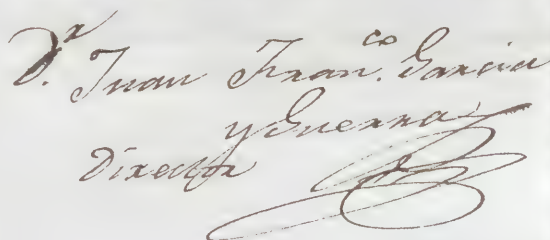 D.r Juan Fran.co Garcia
y Guerra
Director